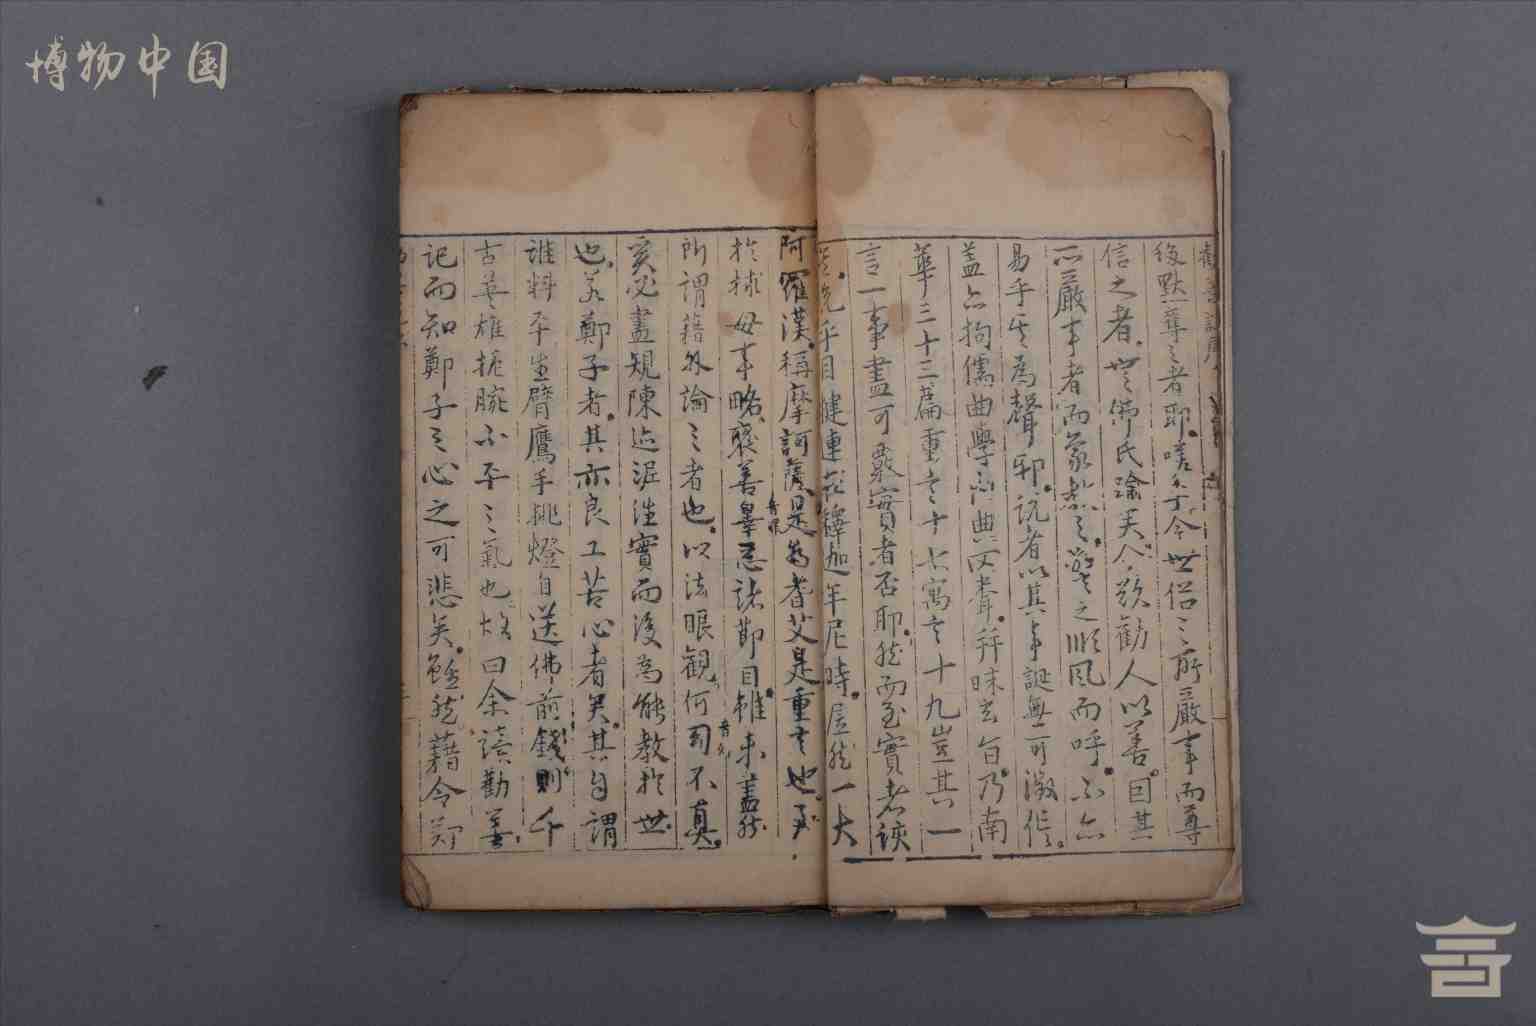 博物中国
勸善記序
後點尊之者耶嗟乎今世俗之所嚴事而尊
信之者世佛氏踰美人欲勸人以善因其
所嚴事者而蒙教之譬之順風而呼不亦
易乎其為聲邪説者以其事誕無可徵信
蓋亦拘儒曲學不典文者并昧玄旨乃南
華三十三篇重言十七寓言十九豈其一
言一事盡可覈實者否耶然而至實者誤
目犍連於釋迦牟尼時居然一大
阿羅漢稱摩訶薩是為耆艾是重言也
於捄母事略聚善辠惡諸節目雖未盡然
所謂藉外論之者也以法眼觀何司不真
奚必盡規陳迹泥往實而後為能教於世
也若鄭子者其亦良工苦心者矣其自謂
誰料平生臂鷹手挑燈自送佛前錢則千
古英雄扼腕不平之氣也故曰余讀勸善
記而知鄭子之心之可悲矣雖然藉令鄭